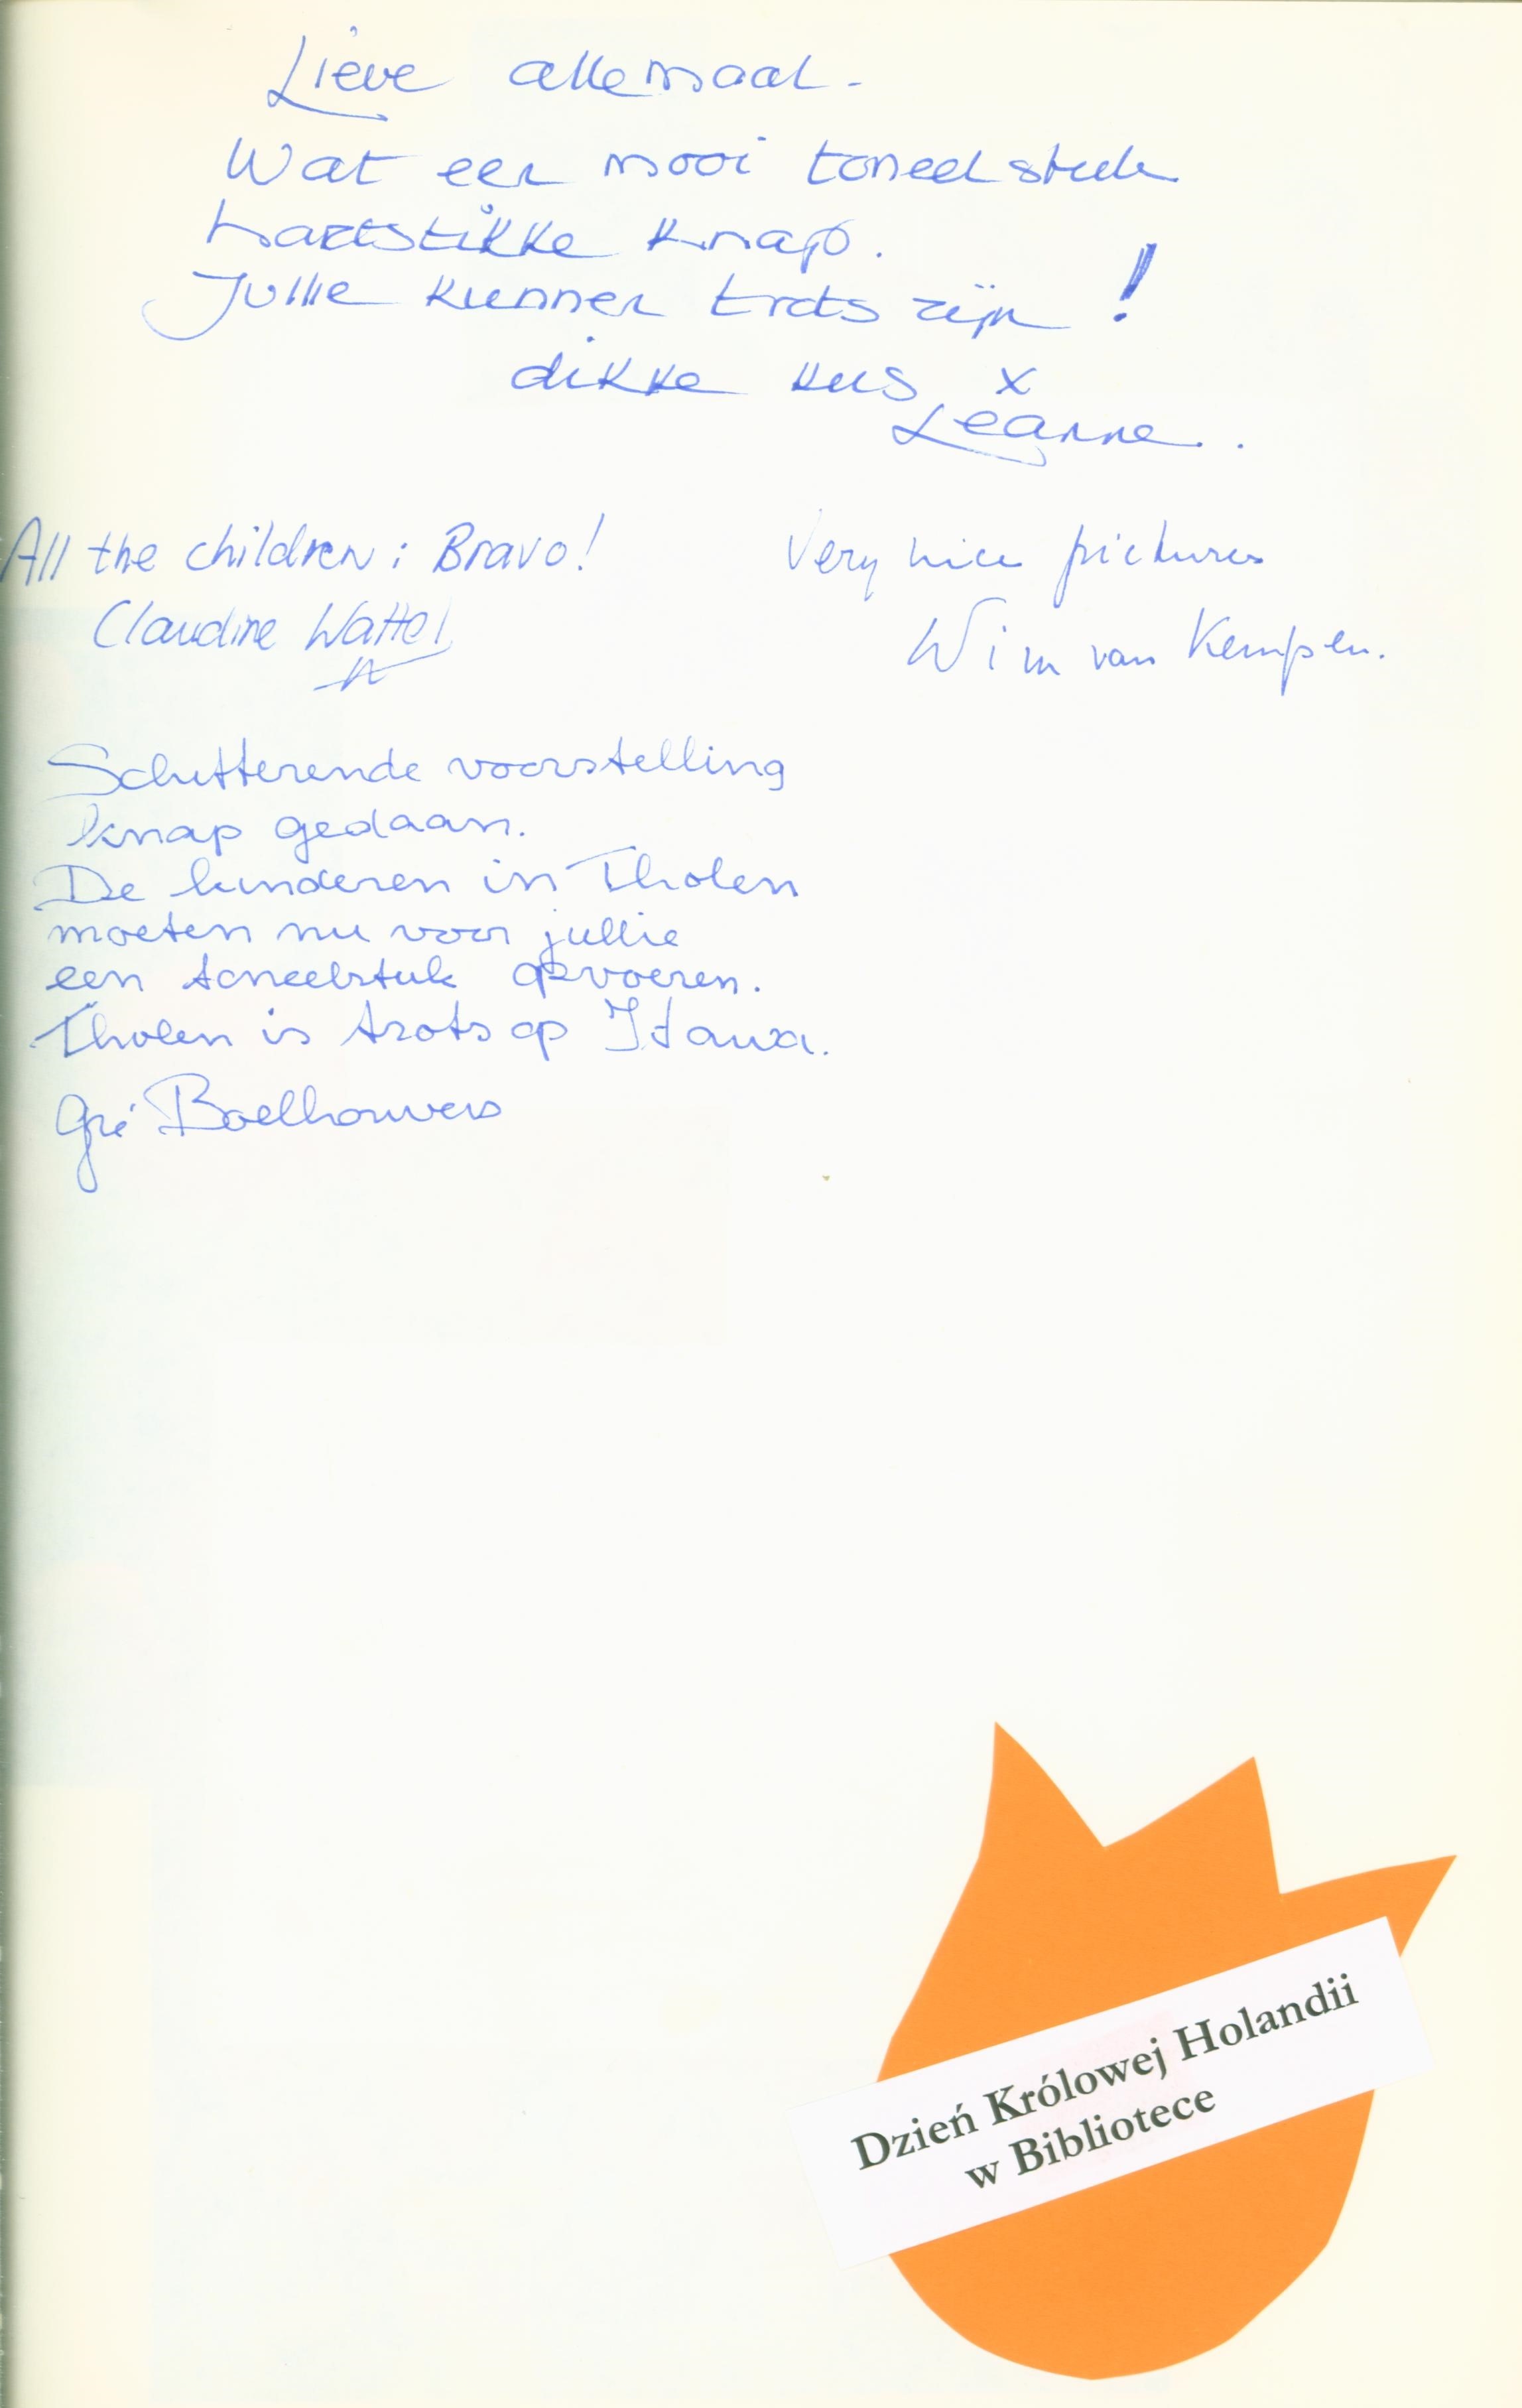 Lieve allemaal -
Wat een mooi toneelstuk
hartstikke knap.
Jullie kunnen trots zijn !
dikke kus x
Leanne.
All the children : Bravo!
Claudine Wattel
Very nice pictures
Wim van Kempen.
Schitterende voorstelling
knap gedaan.
De kinderen in Tholen
moeten nu voor jullie
een toneelstuk opvoeren.
Tholen is trots op Iława.
Gré Boelhouwers
Dzień Królowej Holandii
w Bibliotece